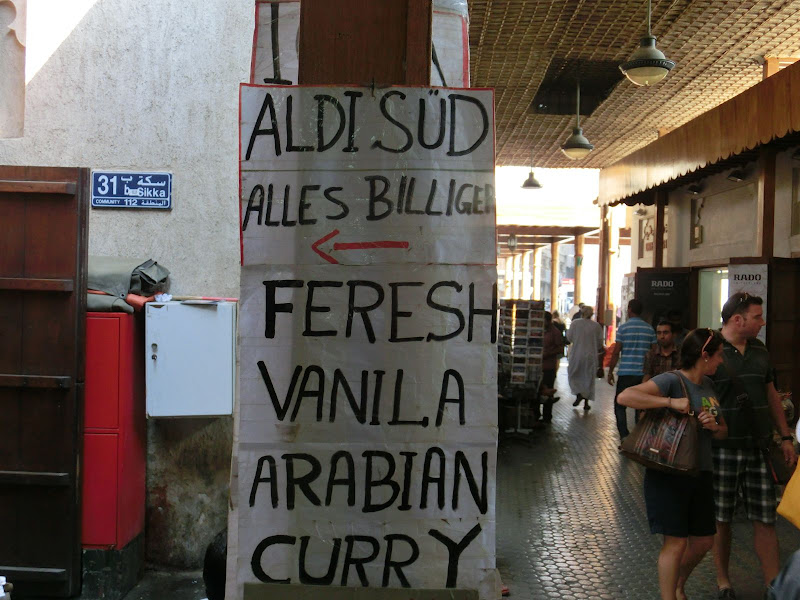 ALDI SÜD
ALLES BILLIGER
FERESH
VANILA
ARABIAN
CURRY
31
سكة ب
Sikka
COMMUNITY 112 المنطقة
RADO
RADO